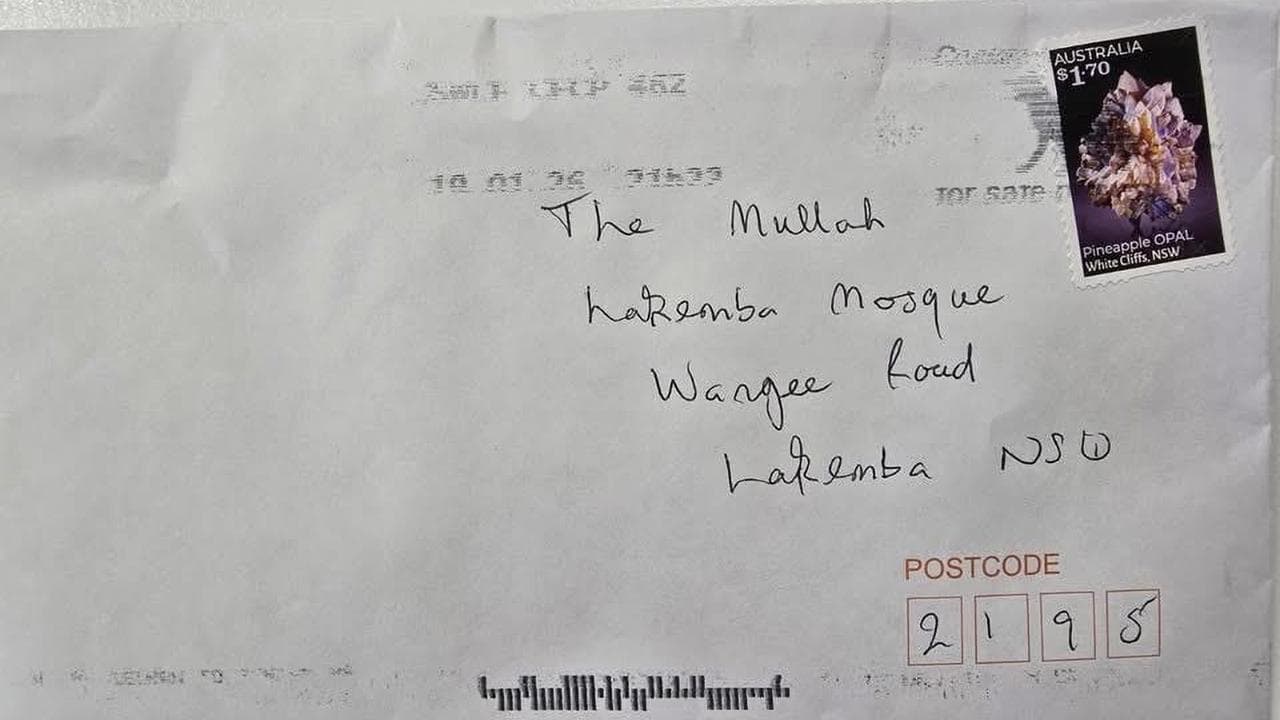 AUSTRALIA
$1.70
Pineapple OPAL
White Cliffs, NSW
The Mullah
Lakemba Mosque
Wangee Road
Lakemba NSW
POSTCODE
2195